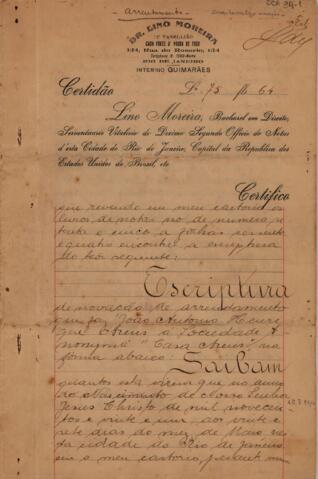 arrendamento
DR. LINO MOREIRA
12º TABELLIÃO
CASA FORTE A' PROVA DE FOGO
134, Rua do Rosario, 134
RIO DE JANEIRO
INTERINO GUIMARÃES
Certidão L.º 75 fls 64
Lino Moreira, Bacharel em Direito,
Serventuario Vitalicio do Decimo Segundo Officio de Notas
d'esta Cidade do Rio de Janeiro, Capital da Republica dos
Estados Unidos do Brasil, etc
Certifico
que revendo em meu cartorio os
livros de notas no de numero se
tenta e cinco a folhas sessenta
e quatro encontrei a escriptura
do teor seguinte:
Escriptura
de novação de arrendamento
que faz João Antonio Henri
que a Sociedade A
nonyma "Casa" na
forma abaixo: Saibam
quantos esta virem que no anno
do Nascimento de Nosso Senhor
Jesus Christo de mil novecen
tos e vinte e um, aos vinte e
sete dias do mez de Maio nes
ta cidade do Rio de Janeiro
em o meu cartorio, perante mim